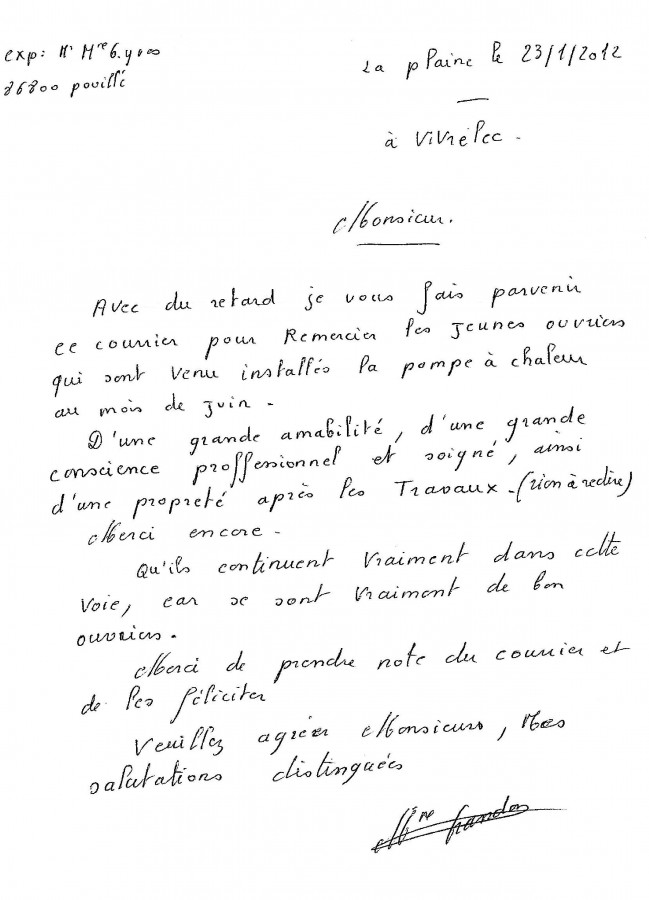 exp: Mr Mme G. y
86800 pouillé
La plaine le 23/1/2012
à Vivrélec.
Monsieur.
Avec du retard je vous fais parvenir
ce courrier pour Remercier les jeunes ouvriers
qui sont venu installés la pompe à chaleur
au mois de juin.
D'une grande amabilité, d'une grande
conscience proffessionnel et soigné, ainsi
d'une propreté après les Travaux. (rien à redire)
Merci encore.
Qu'ils continuent vraiment dans cette
voie, car se sont vraiment de bon
ouvriers.
Merci de prendre note du courrier et
de les féliciter
Veuillez agréer Monsieur, mes
salutations distinguées